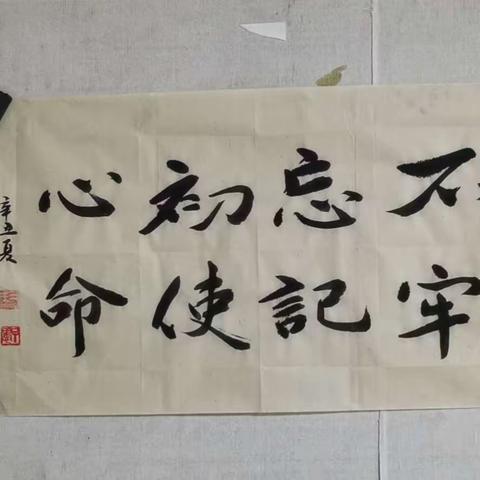 不忘初心
牢記使命
辛丑夏